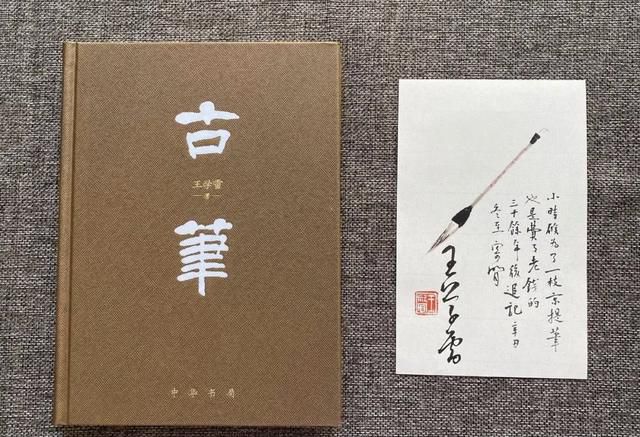 古
王学雷
著
筆
中华书局
小時候为了一枝京提筆
也是費了老錢的
三十餘年後追記辛丑
冬至
王学雷